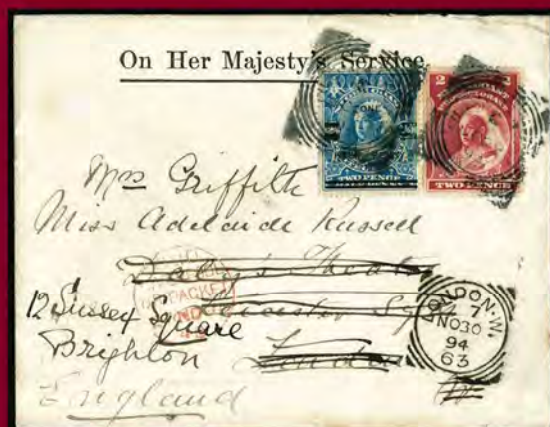 On Her Majesty's Service.
2 2
TWO PENCE
HALF PENNY
TWO PENCE
Mrs Griffith
Miss Adelaide Russell
Daly's Theatre
PACKET
12 Sussex Square Leicester Sq
Brighton London
W
England
LONDON.W.
7
NO30
94
63